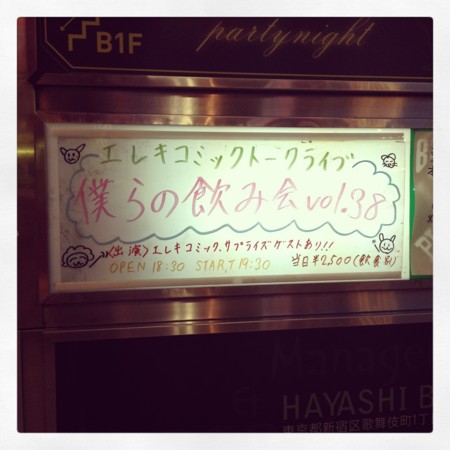 B1F
partynight
エレキコミックトークライブ
僕らの飲み会 vol.38
〈出演〉エレキコミック、サプライズゲストあり!!
OPEN 18:30 START 19:30 当日¥2,500(飲食別)
Manage
HAYASHI B
東京都新宿区歌舞伎町1丁